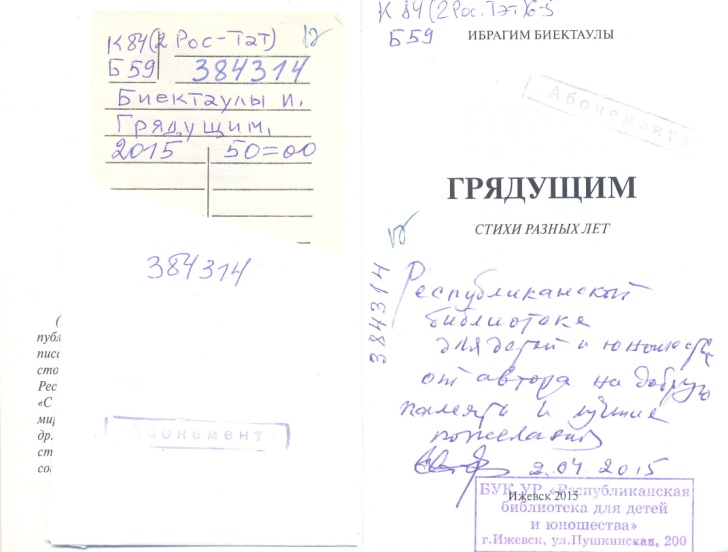 К 84(2 Рос-Тат)
Б 59
384314
Биектаулы И.
Грядущим.
2015 50=00
384314
(
публ
писа
сто
Рес
«С
мир
др.
ст
сов
Абонемент
К 84(2Рос.Тэт)6-5
Б 59
ИБРАГИМ БИЕКТАУЛЫ
Абонемент
ГРЯДУЩИМ
СТИХИ РАЗНЫХ ЛЕТ
384314
Республиканской
библиотеке
для детей и юношества
от автора на добрую
память и лучшие
пожелания
2.04.2015
Ижевск 2015
БУК УР «Республиканская
библиотека для детей
и юношества»
г.Ижевск, ул.Пушкинская, 200